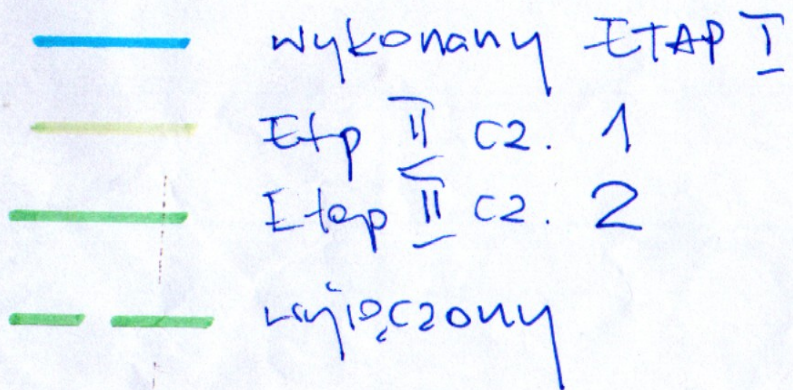 wykonany ETAP I
Etp II cz. 1
Etap II cz. 2
wyłączony